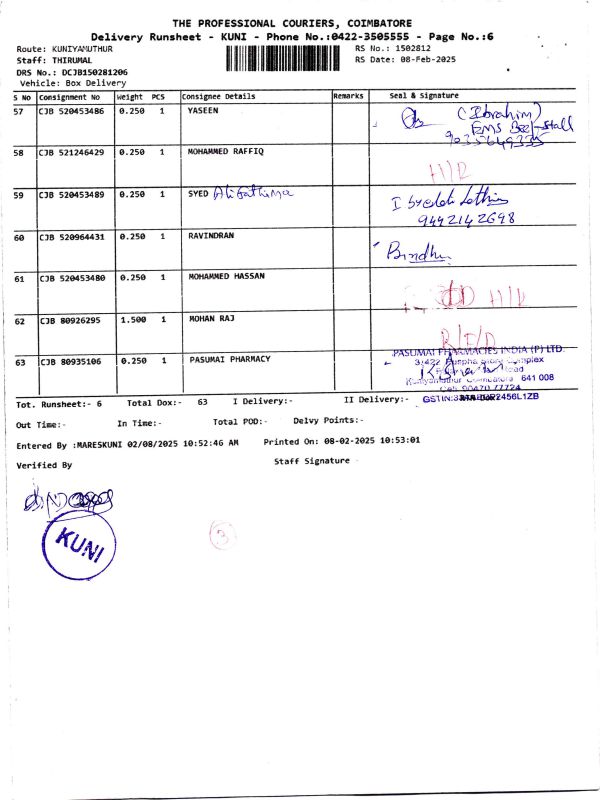 THE PROFESSIONAL COURIERS, COIMBATORE
Delivery Runsheet - KUNI - Phone No.:0422-3505555 - Page No.:6
Route: KUNIYAMUTHUR RS No.: 1502812
Staff: THIRUMAL RS Date: 08-Feb-2025
DRS No.: DCJB150281206
Vehicle: Box Delivery
S No Consignment No Weight PCS Consignee Details Remarks Seal & Signature
57 CJB 520453486 0.250 1 YASEEN (Ibrahim)
58 CJB 521246429 0.250 1 MOHAMMED RAFFIQ
59 CJB 520453489 0.250 1 SYED Ali Fathima
9492142698
60 CJB 520964431 0.250 1 RAVINDRAN Bindhu
61 CJB 520453480 0.250 1 MOHAMMED HASSAN
62 CJB 80926295 1.500 1 MOHAN RAJ
63 CJB 80935106 0.250 1 PASUMAI PHARMACY
PASUMAI PHARMACIES INDIA (P) LTD.
Complex
Road
Kuniyamuthur Coimbatore 641 008
Tot. Runsheet:- 6 Total Dox:- 63 I Delivery:- II Delivery:-
Out Time:- In Time:- Total POD:- Delvy Points:-
Entered By :MARESKUNI 02/08/2025 10:52:46 AM Printed On: 08-02-2025 10:53:01
Verified By Staff Signature
KUNI
3